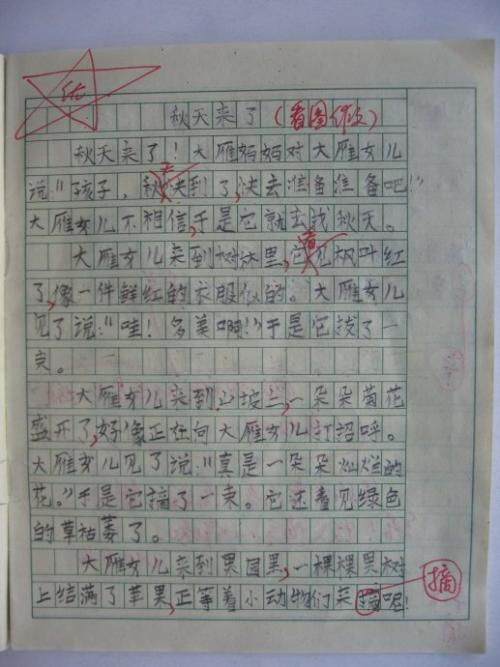 优
秋天来了（看图作文）
秋天来了！大雁妈妈对大雁女儿
说：“孩子，秋天快到了，快去准备准备吧！”
大雁女儿不相信，于是它就去找秋天。
大雁女儿来到树林里，它看见枫叶红
了，像一件鲜红的衣服似的。大雁女儿
见了说：“哇！多美啊！”于是它拔了一
束。
大雁女儿来到山坡上，一朵朵菊花
盛开了，好像正在向大雁女儿打招呼。
大雁女儿见了说：“真是一朵朵灿烂的
花。”于是它摘了一束。它还看见绿色
的草枯萎了。
大雁女儿来到果园里，一棵棵果树
上结满了苹果，正等着小动物们来摘呢！
摘